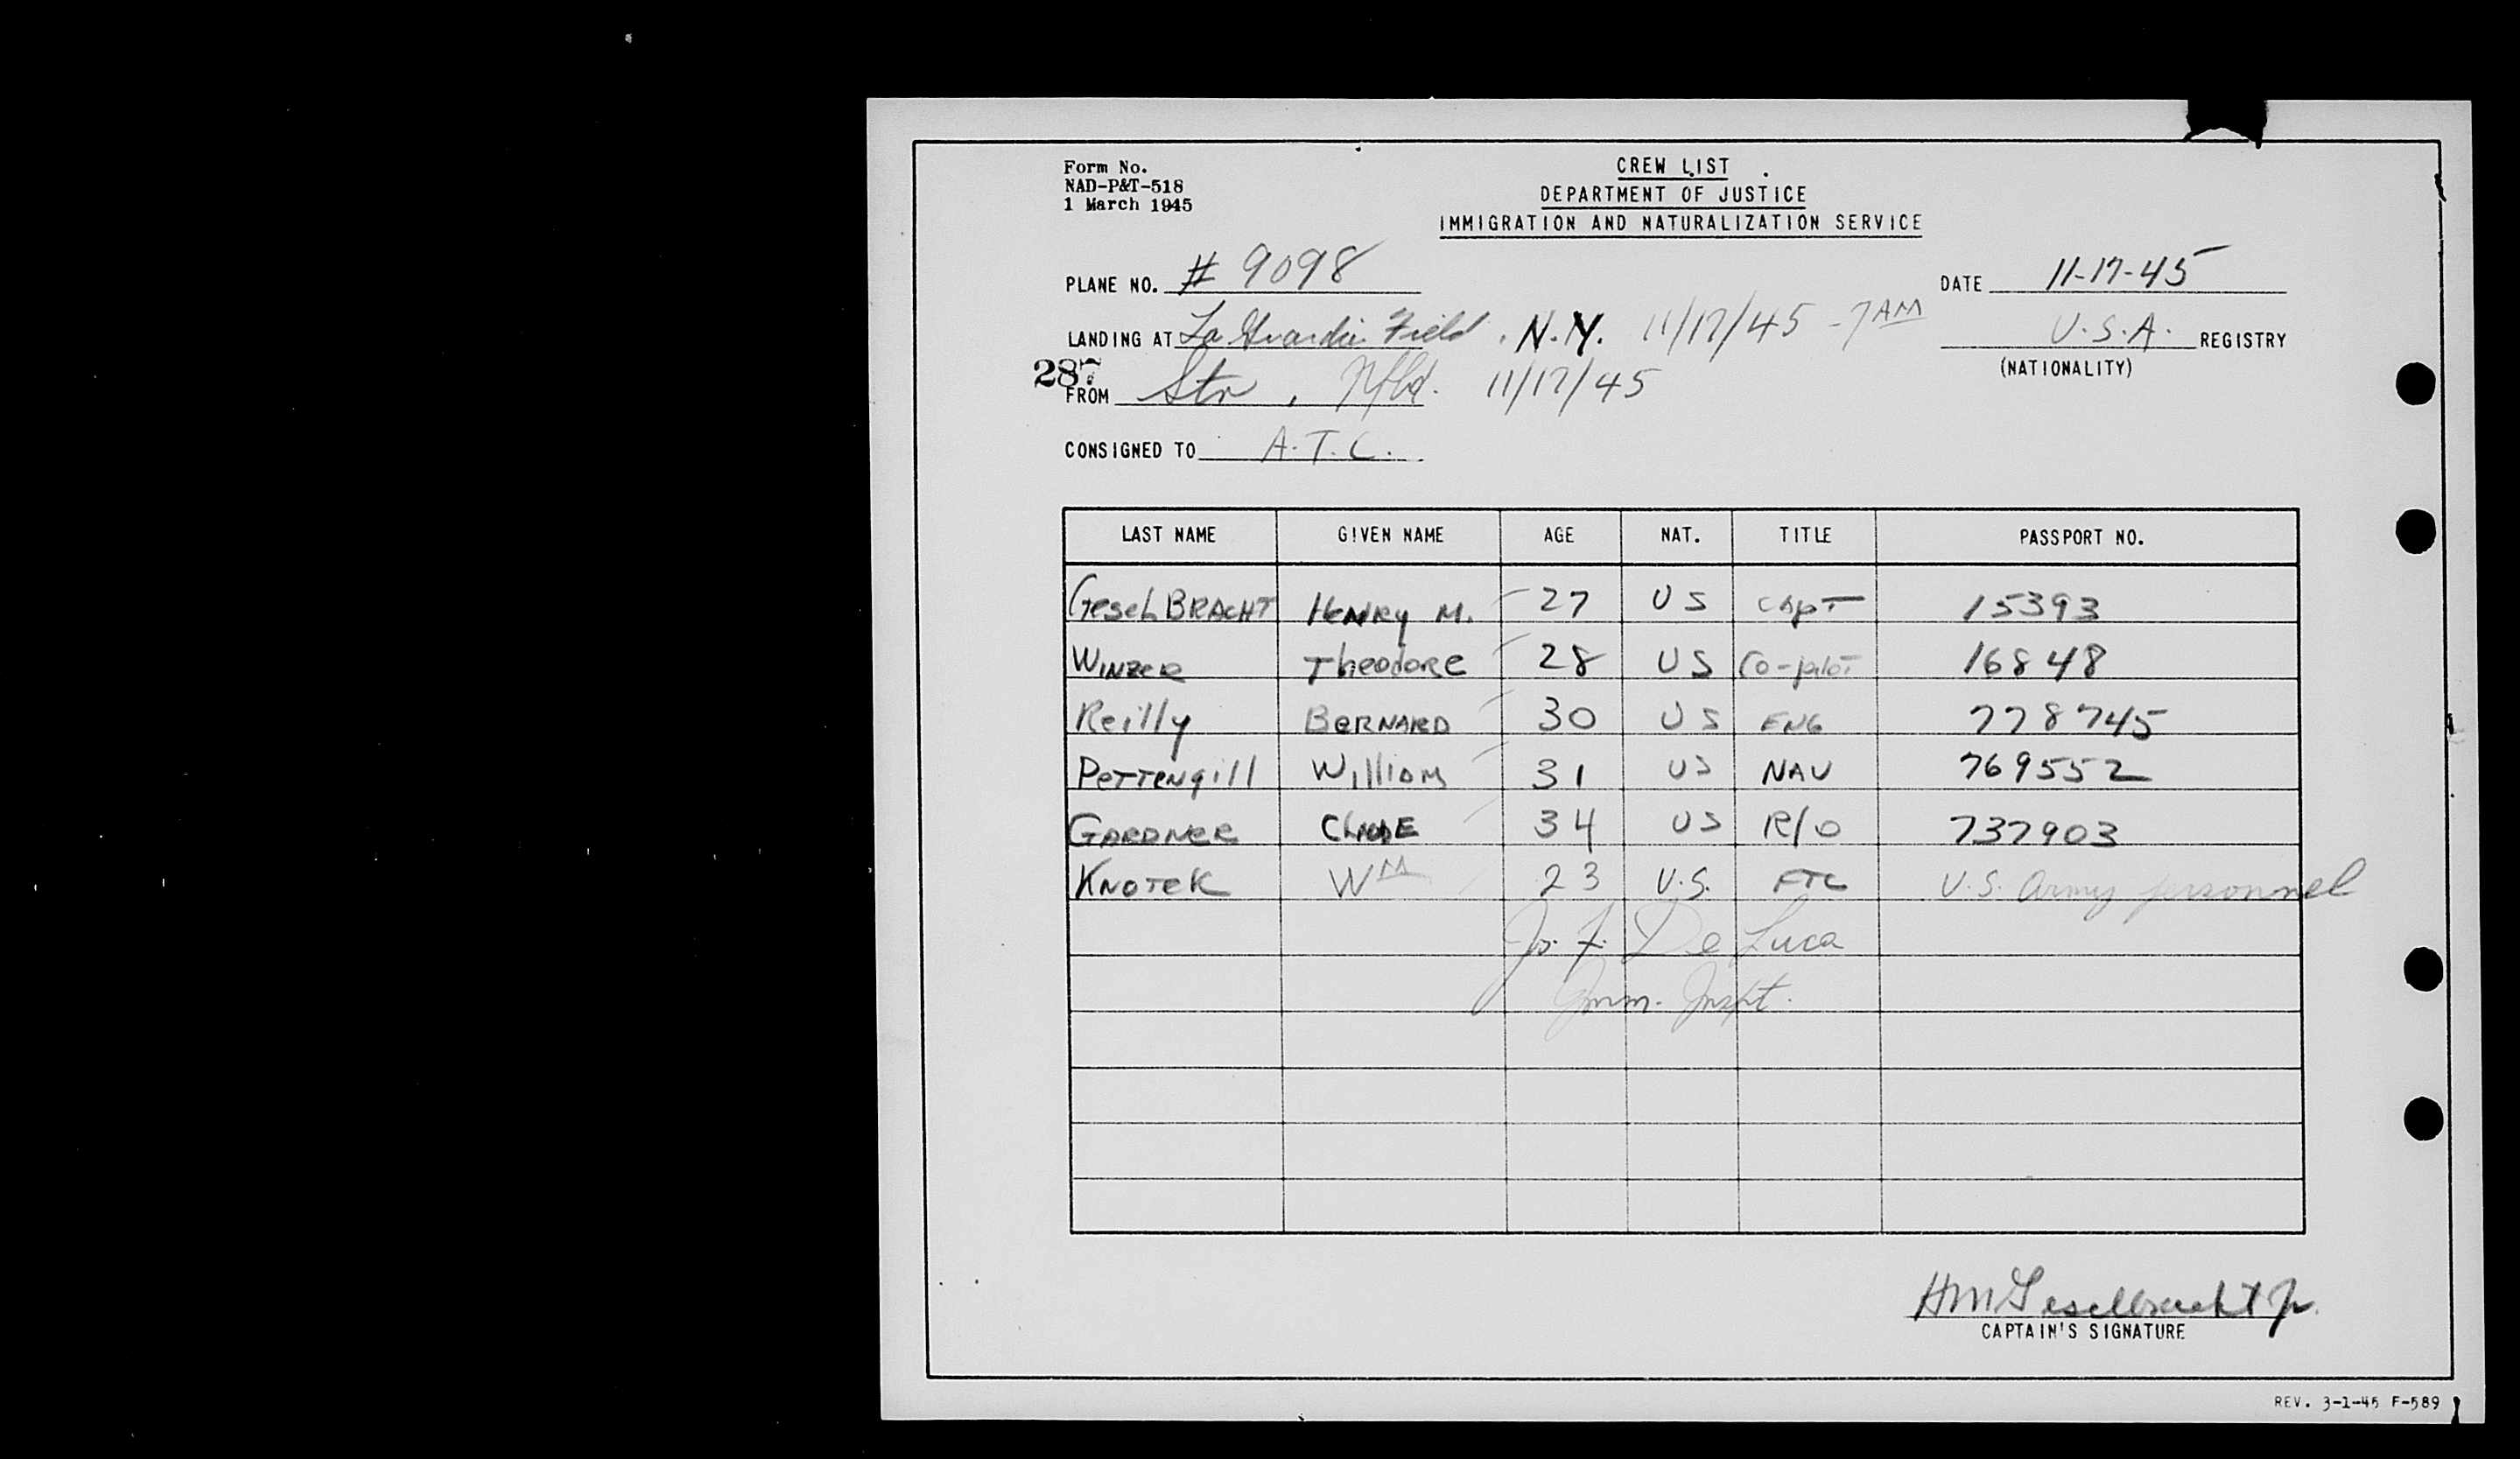 Form No.
NAD-P&T-518
1 March 1945
CREW LIST
DEPARTMENT OF JUSTICE
IMMIGRATION AND NATURALIZATION SERVICE
PLANE NO. # 9098
DATE 11-17-45
LANDING AT La Guardia Field, N.Y. 11/17/45 - 7 AM
U.S.A. REGISTRY
(NATIONALITY)
287
FROM Str, Nfld. 11/17/45
CONSIGNED TO A.T.C.
LAST NAME GIVEN NAME AGE NAT. TITLE PASSPORT NO.
GeseLBRACHT HENRy M. 27 US CApT 15393
WINZER Theodore 28 US Co-pilot 16848
Reilly BERNARD 30 US ENG 778745
PeTTeNgill William 31 US NAV 769552
GARDNER CLAUDE 34 US R/O 737903
KNOTEK WM 23 U.S. FTC U.S. Army personnel
Jo. F. De Luca
Imm. Inspt.
HM Geselbracht Jr.
CAPTAIN'S SIGNATURE
REV. 3-1-45 F-589